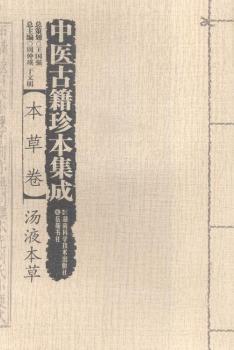 中医古籍珍本集成
总策划◎王国强
总主编◎周仲瑛 于文明
【本草卷】
汤液本草
湖南科学技术出版社
岳麓书社